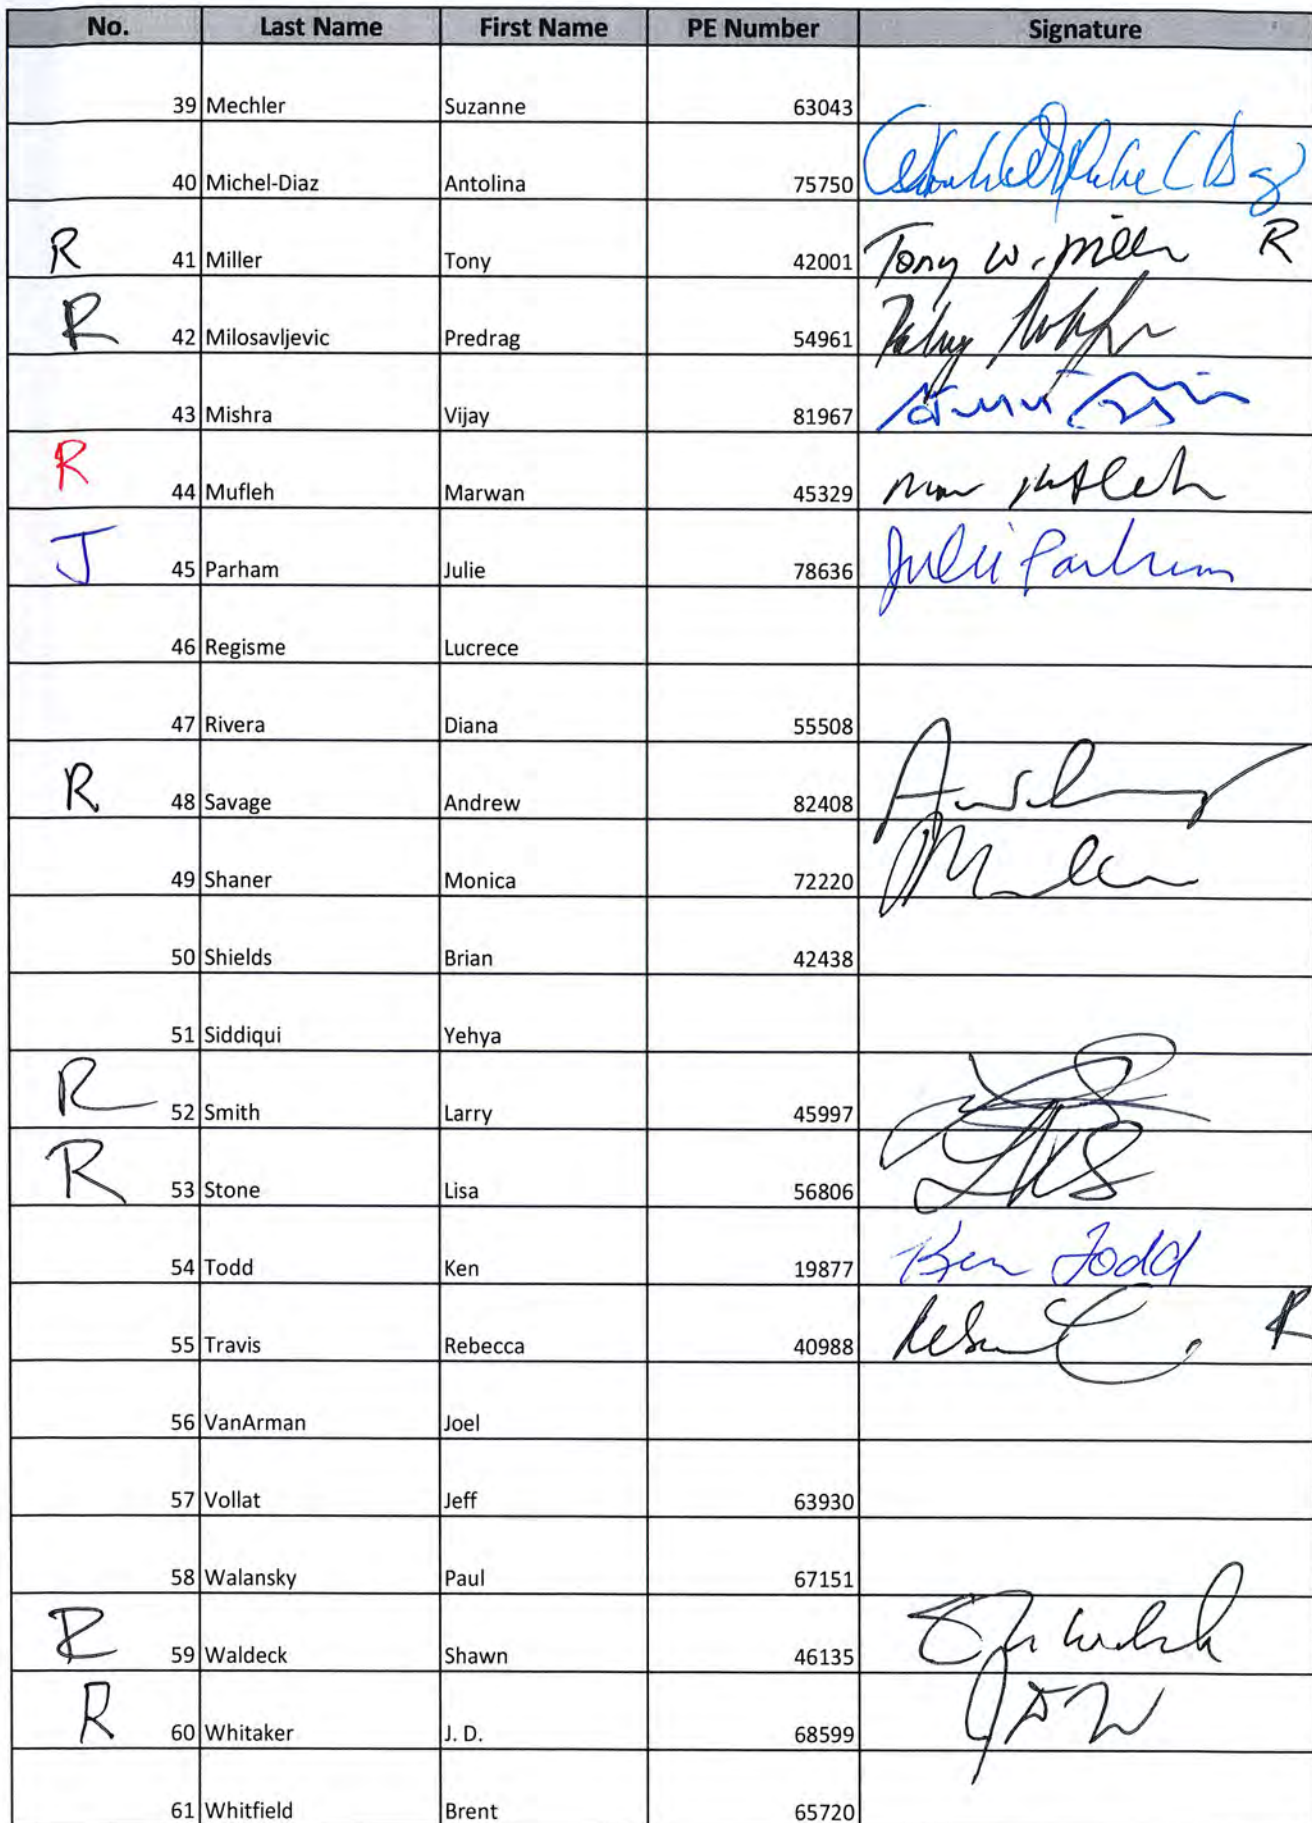 No. Last Name First Name PE Number Signature
39 Mechler Suzanne 63043
40 Michel-Diaz Antolina 75750
R 41 Miller Tony 42001 Tony W. Miller R
R 42 Milosavljevic Predrag 54961
43 Mishra Vijay 81967
R 44 Mufleh Marwan 45329 Mufleh
J 45 Parham Julie 78636 Julie Parham
46 Regisme Lucrece
47 Rivera Diana 55508
R 48 Savage Andrew 82408
49 Shaner Monica 72220
50 Shields Brian 42438
51 Siddiqui Yehya
R 52 Smith Larry 45997
R 53 Stone Lisa 56806
54 Todd Ken 19877 Ken Todd
55 Travis Rebecca 40988 R
56 VanArman Joel
57 Vollat Jeff 63930
58 Walansky Paul 67151
R 59 Waldeck Shawn 46135
R 60 Whitaker J. D. 68599 JDW
61 Whitfield Brent 65720